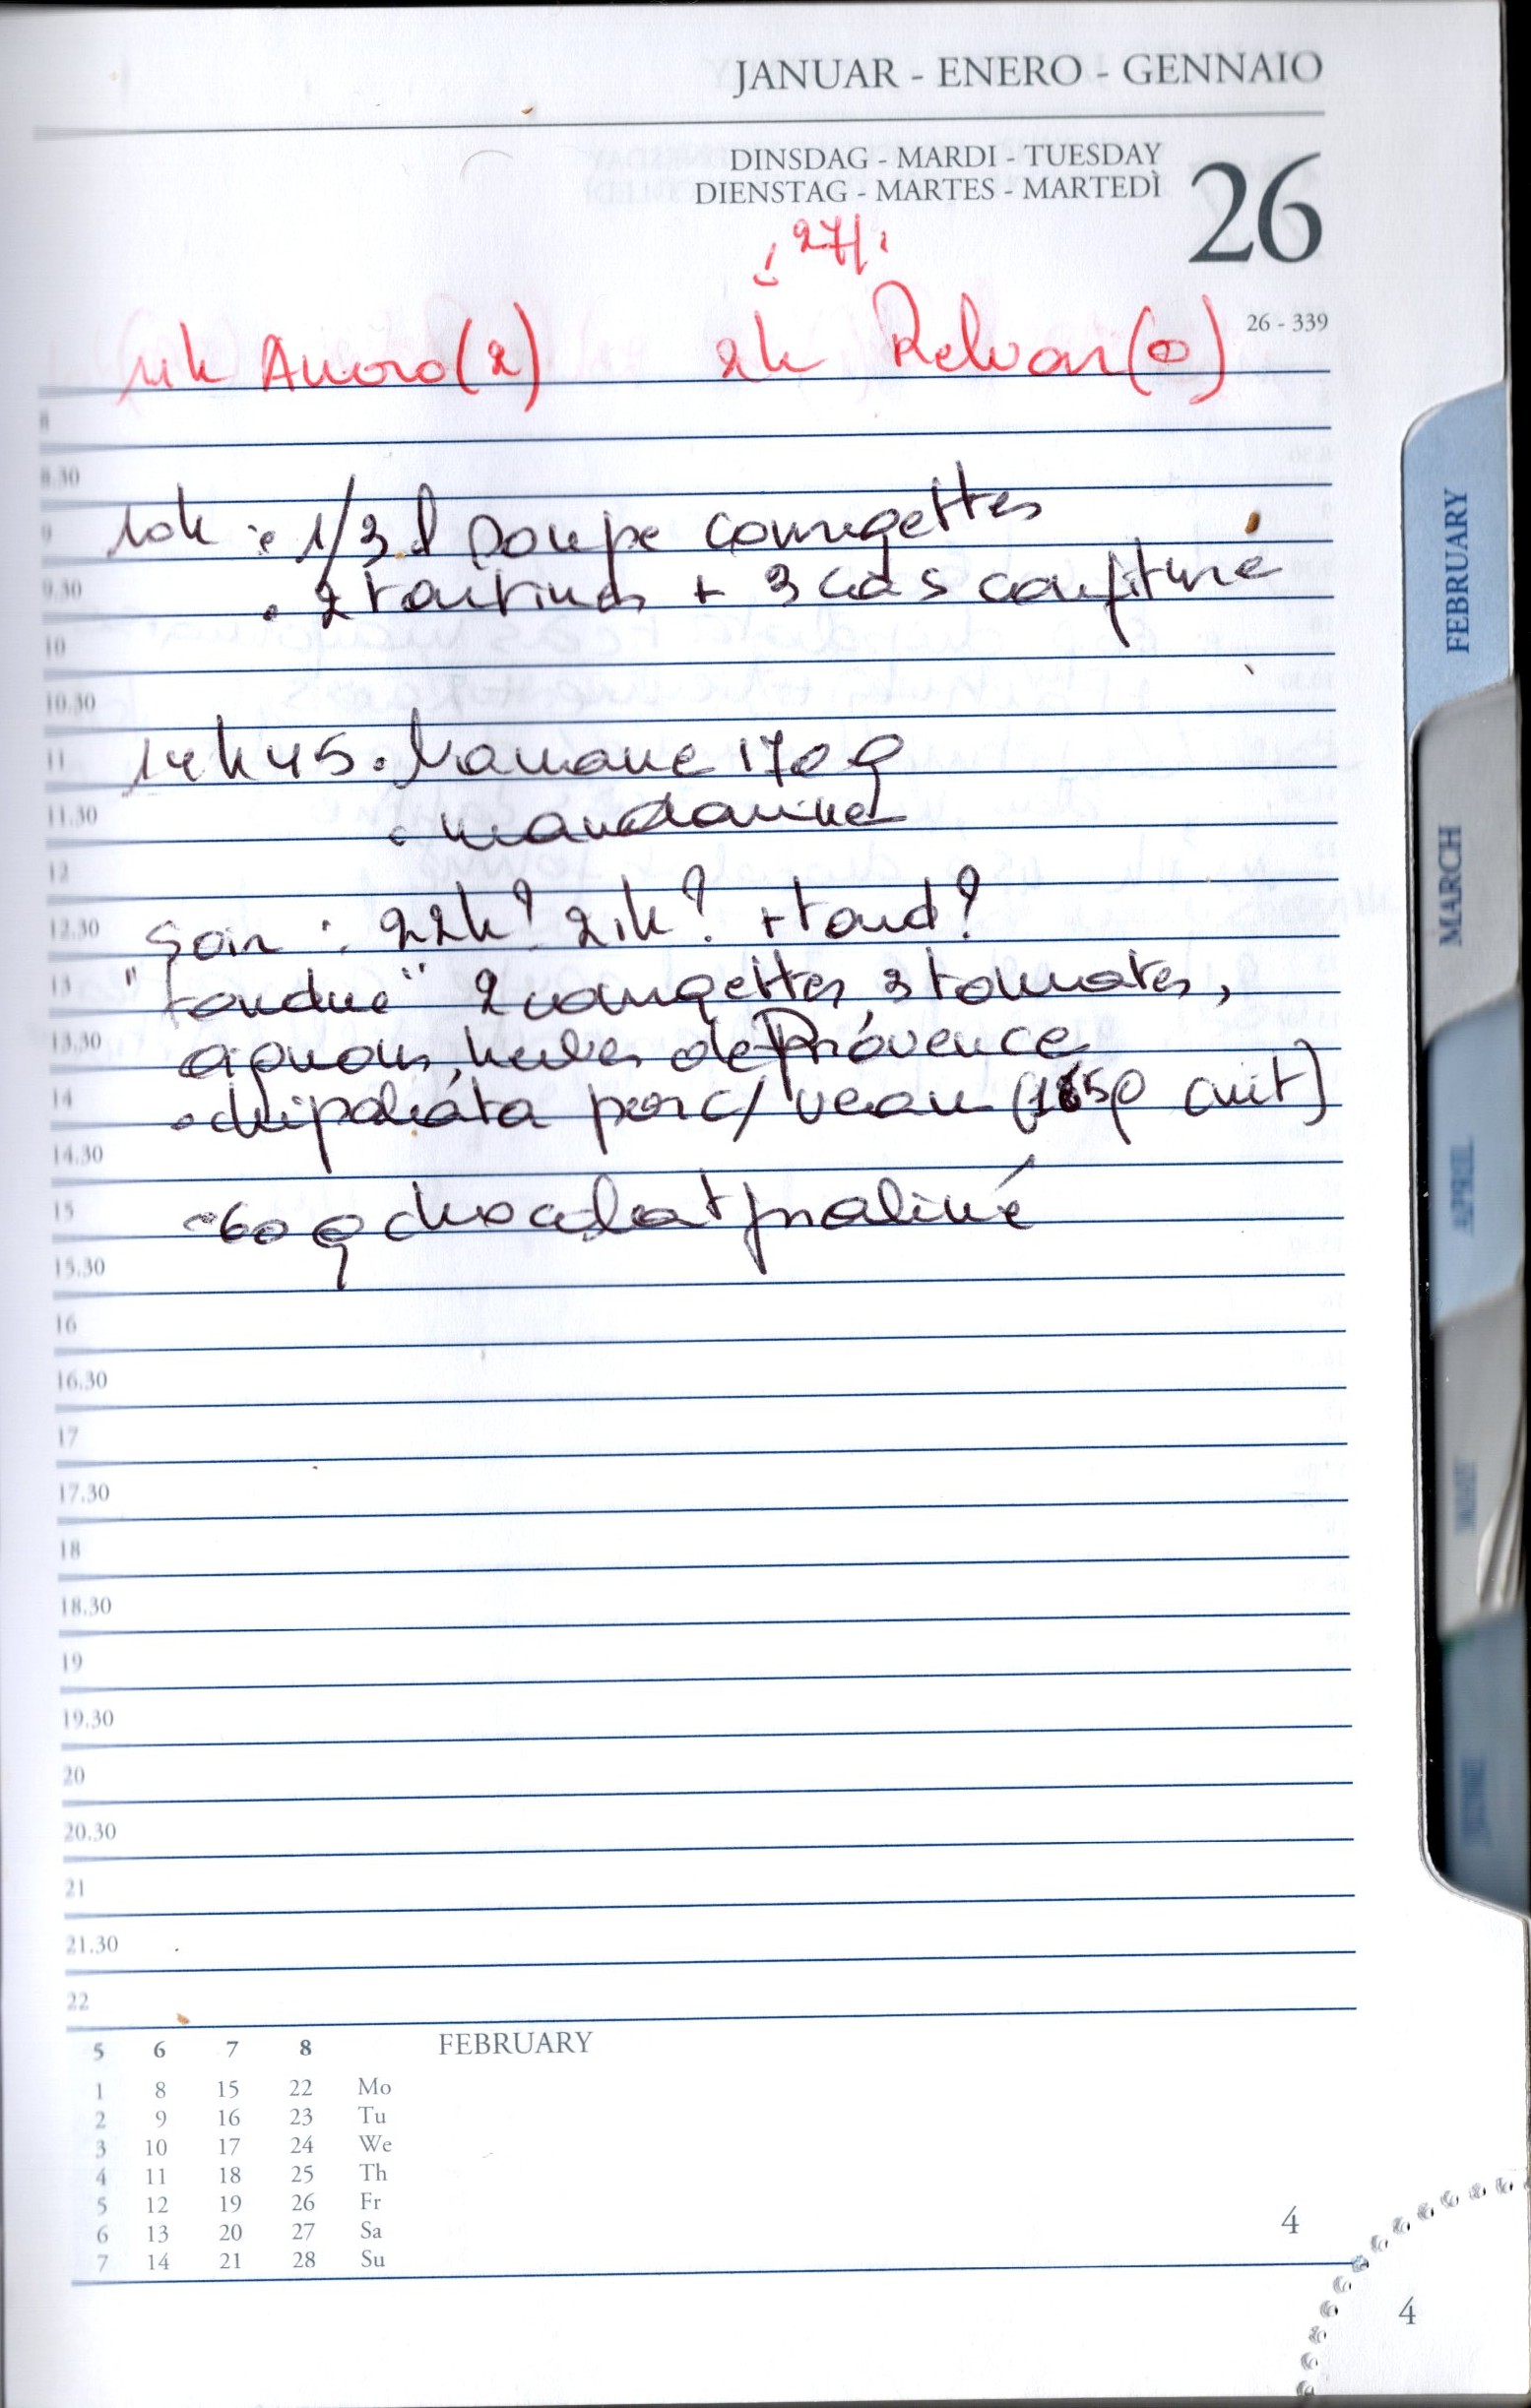 JANUAR - ENERO - GENNAIO
DINSDAG - MARDI - TUESDAY
DIENSTAG - MARTES - MARTEDÌ
26
27/1
26 - 339
(2) 2h Relvar(2)
8
8.30
10h : 1/3 l soupe courgettes
9
9.30
. 2 tartines + 3 càs confiture
10
10.30
11
14h45 . Banane 170 g
11.30
. mandarine
12
12.30
Soir : 22h? 21h? + tard?
13
"fondue" 2 courgettes, 3 tomates,
13.30
oignons, herbes de Provence
14
. chipolata porc/veau (165g cuit)
14.30
15
~60 g chocolat praliné
15.30
16
16.30
17
17.30
18
18.30
19
19.30
20
20.30
21
21.30
22
5 6 7 8 FEBRUARY
1 8 15 22 Mo
2 9 16 23 Tu
3 10 17 24 We
4 11 18 25 Th
5 12 19 26 Fr
6 13 20 27 Sa
7 14 21 28 Su
4
4
FEBRUARY
MARCH
APRIL
MAY
JUNE